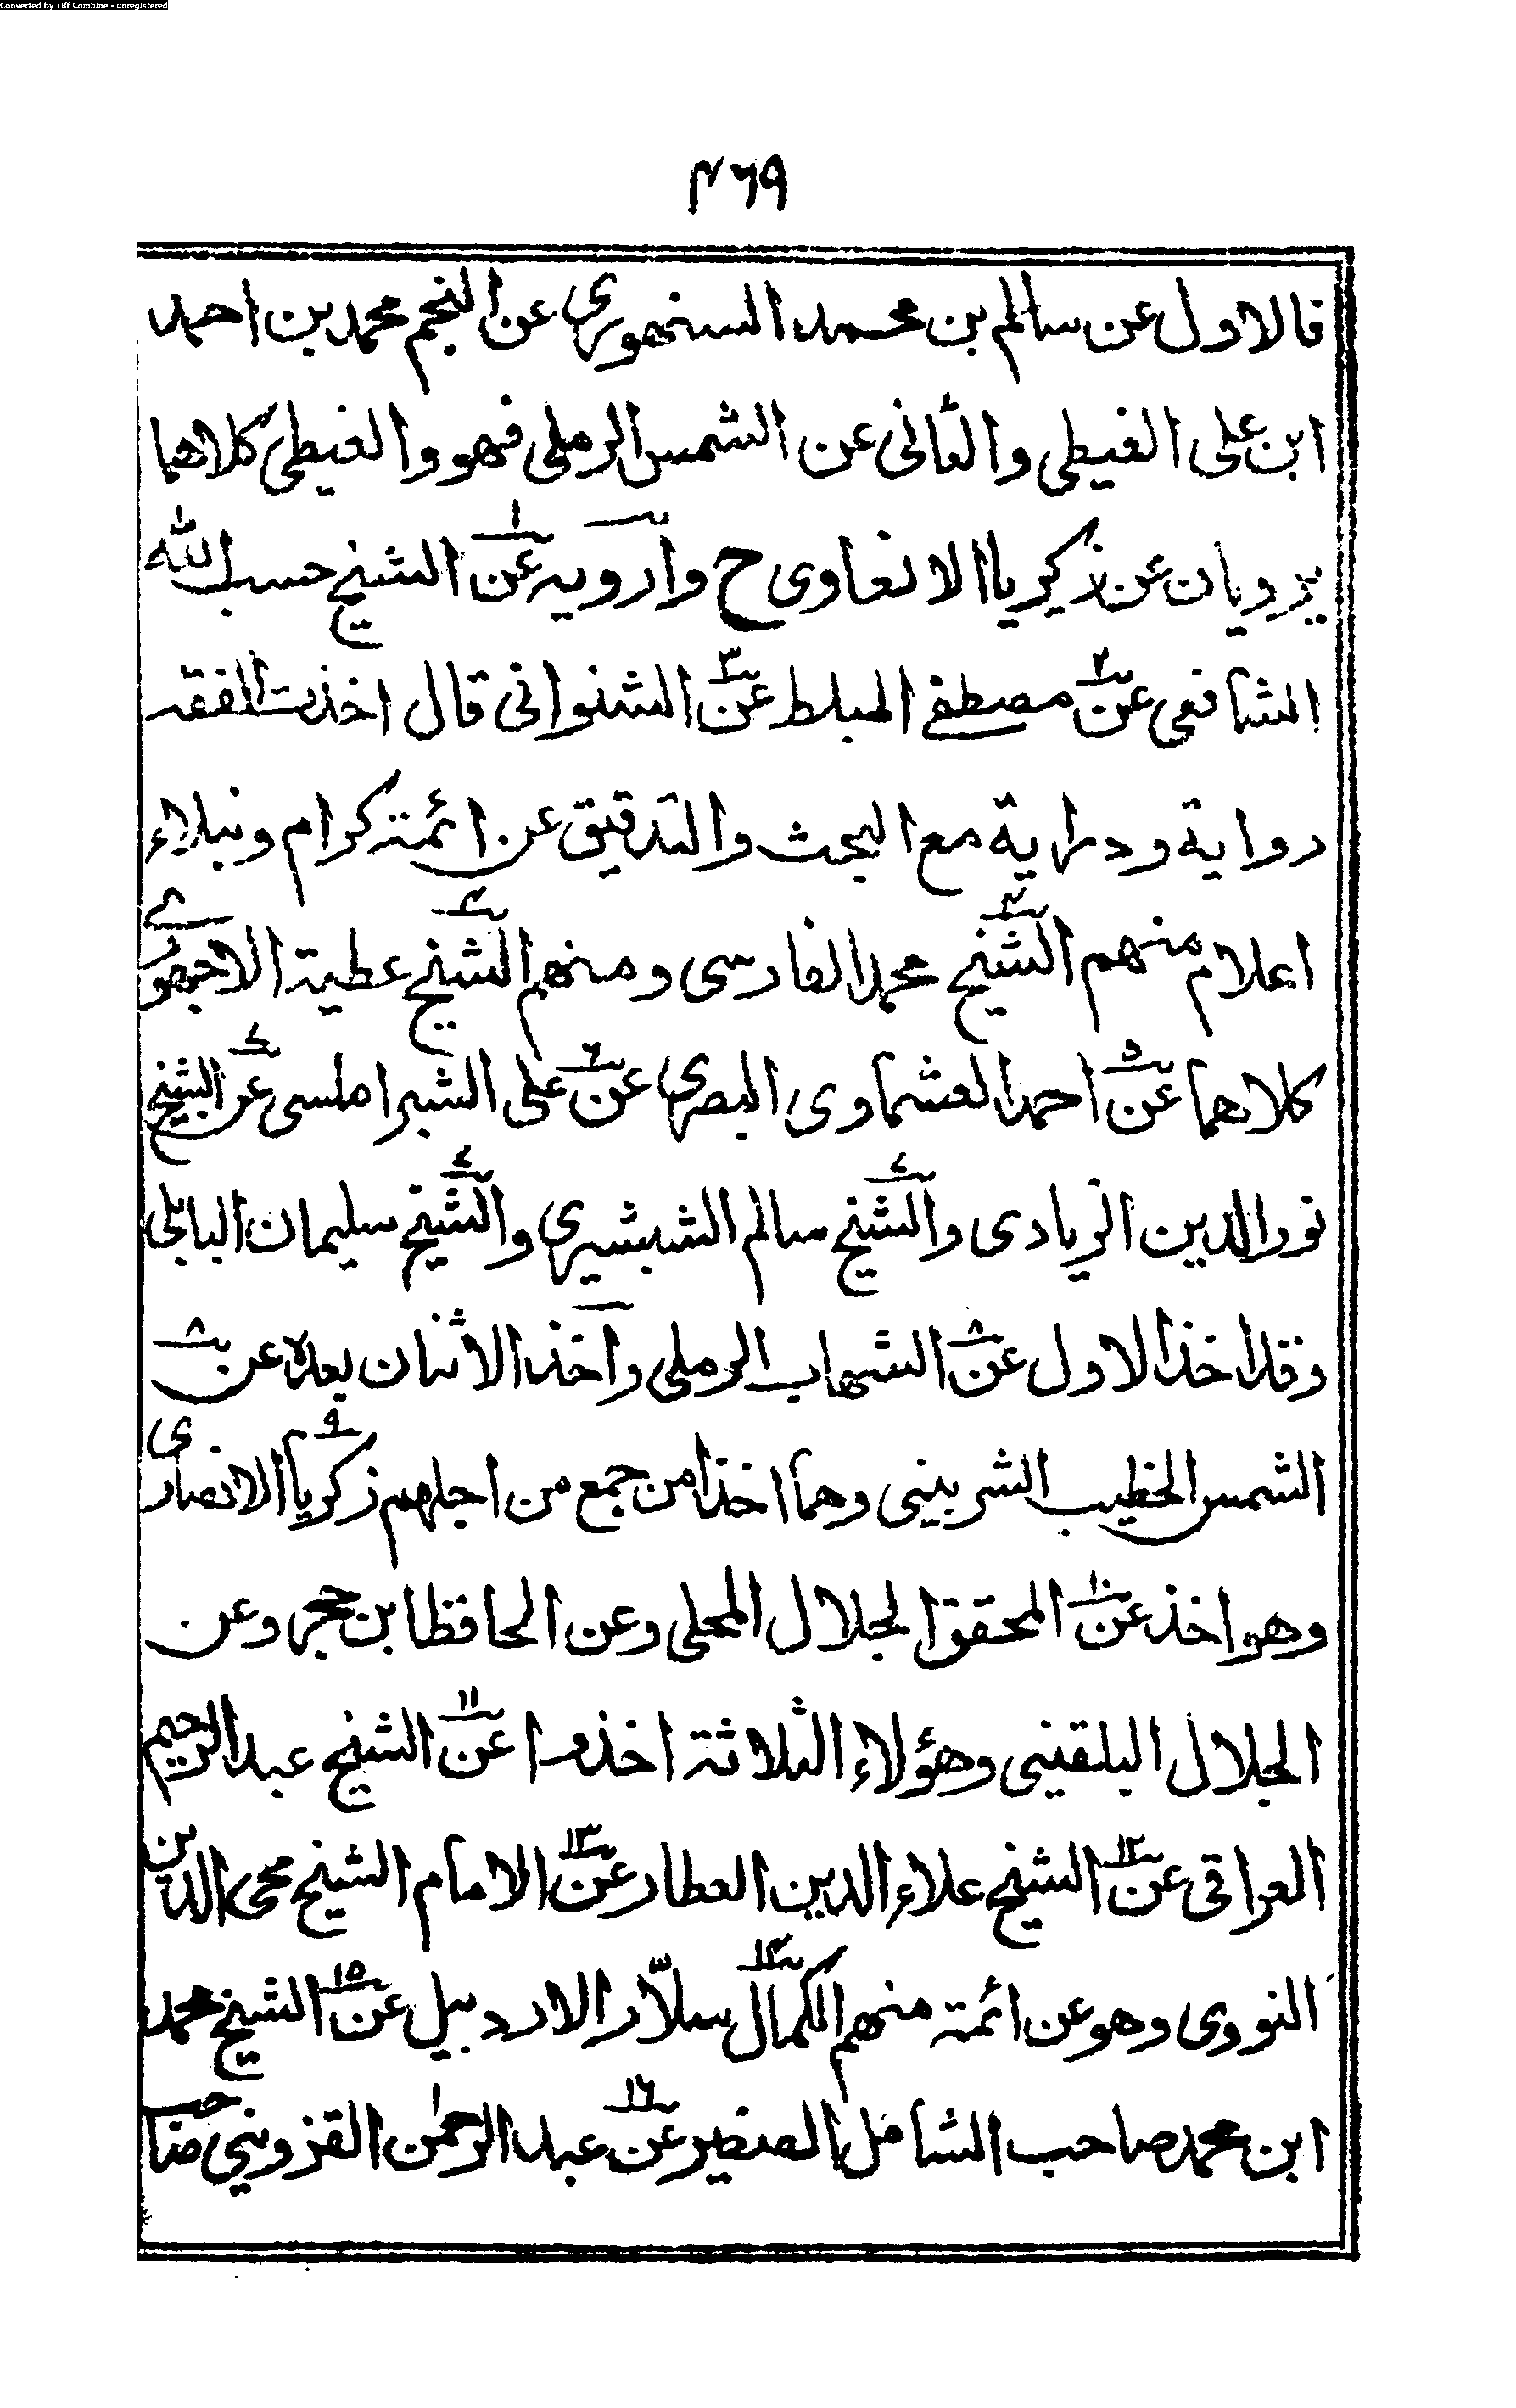 Converted by Tiff Combine - unregistered
٤٦٩
فالاول عن سالم بن محمد السنهوري عن النجم محمد بن احمد
ابن على الغيطى والثانى عن الشمس الرملى فهو والغيطى كلاهما
يرويان عن زكريا الانصاوى ح وارويه عن ١ الشيخ حسب الله
الشافعى عن ٢ مصطفى المبلط عن ٣ الشنوانى قال اخذت الفقه
رواية ودراية مع البحث والتدقيق عن ائمة كرام ونبلاء
اعلام منهم الشيخ ٤ محمد الفارسى ومنهم الشيخ ٤ عطية الاجهوري
كلاهما عن ٥ احمد العشماوى البصرى عن ٦ على الشبراملسى عن ٧ الشيخ
نور الدين الزيادى والشيخ ٧ سالم الشبشيرى والشيخ ٧ سليمان البابلى
وقد اخذ الاول عن ٨ الشهاب الرملى واخذ الاثنان بعده عن ٨
الشمس الخطيب الشربينى وهما اخذا من جمع من اجلهم زكريا ٩ الانصارى
وهو اخذ عن ١٠ المحقق الجلال المحلى وعن الحافظ ابن حجر وعن
الجلال البلقينى وهؤلاء الثلاثة اخذوا عن ١١ الشيخ عبد الرحيم
العراقى عن ١٢ الشيخ علاء الدين العطار عن ١٣ الامام الشيخ محى الدين
النووى وهو عن ائمة منهم الكمال ١٤ سلّار الاردبيل عن ١٥ الشيخ محمد
ابن محمد صاحب الشامل الصغير عن ١٦ عبد الرحمن القزوينى صاحب